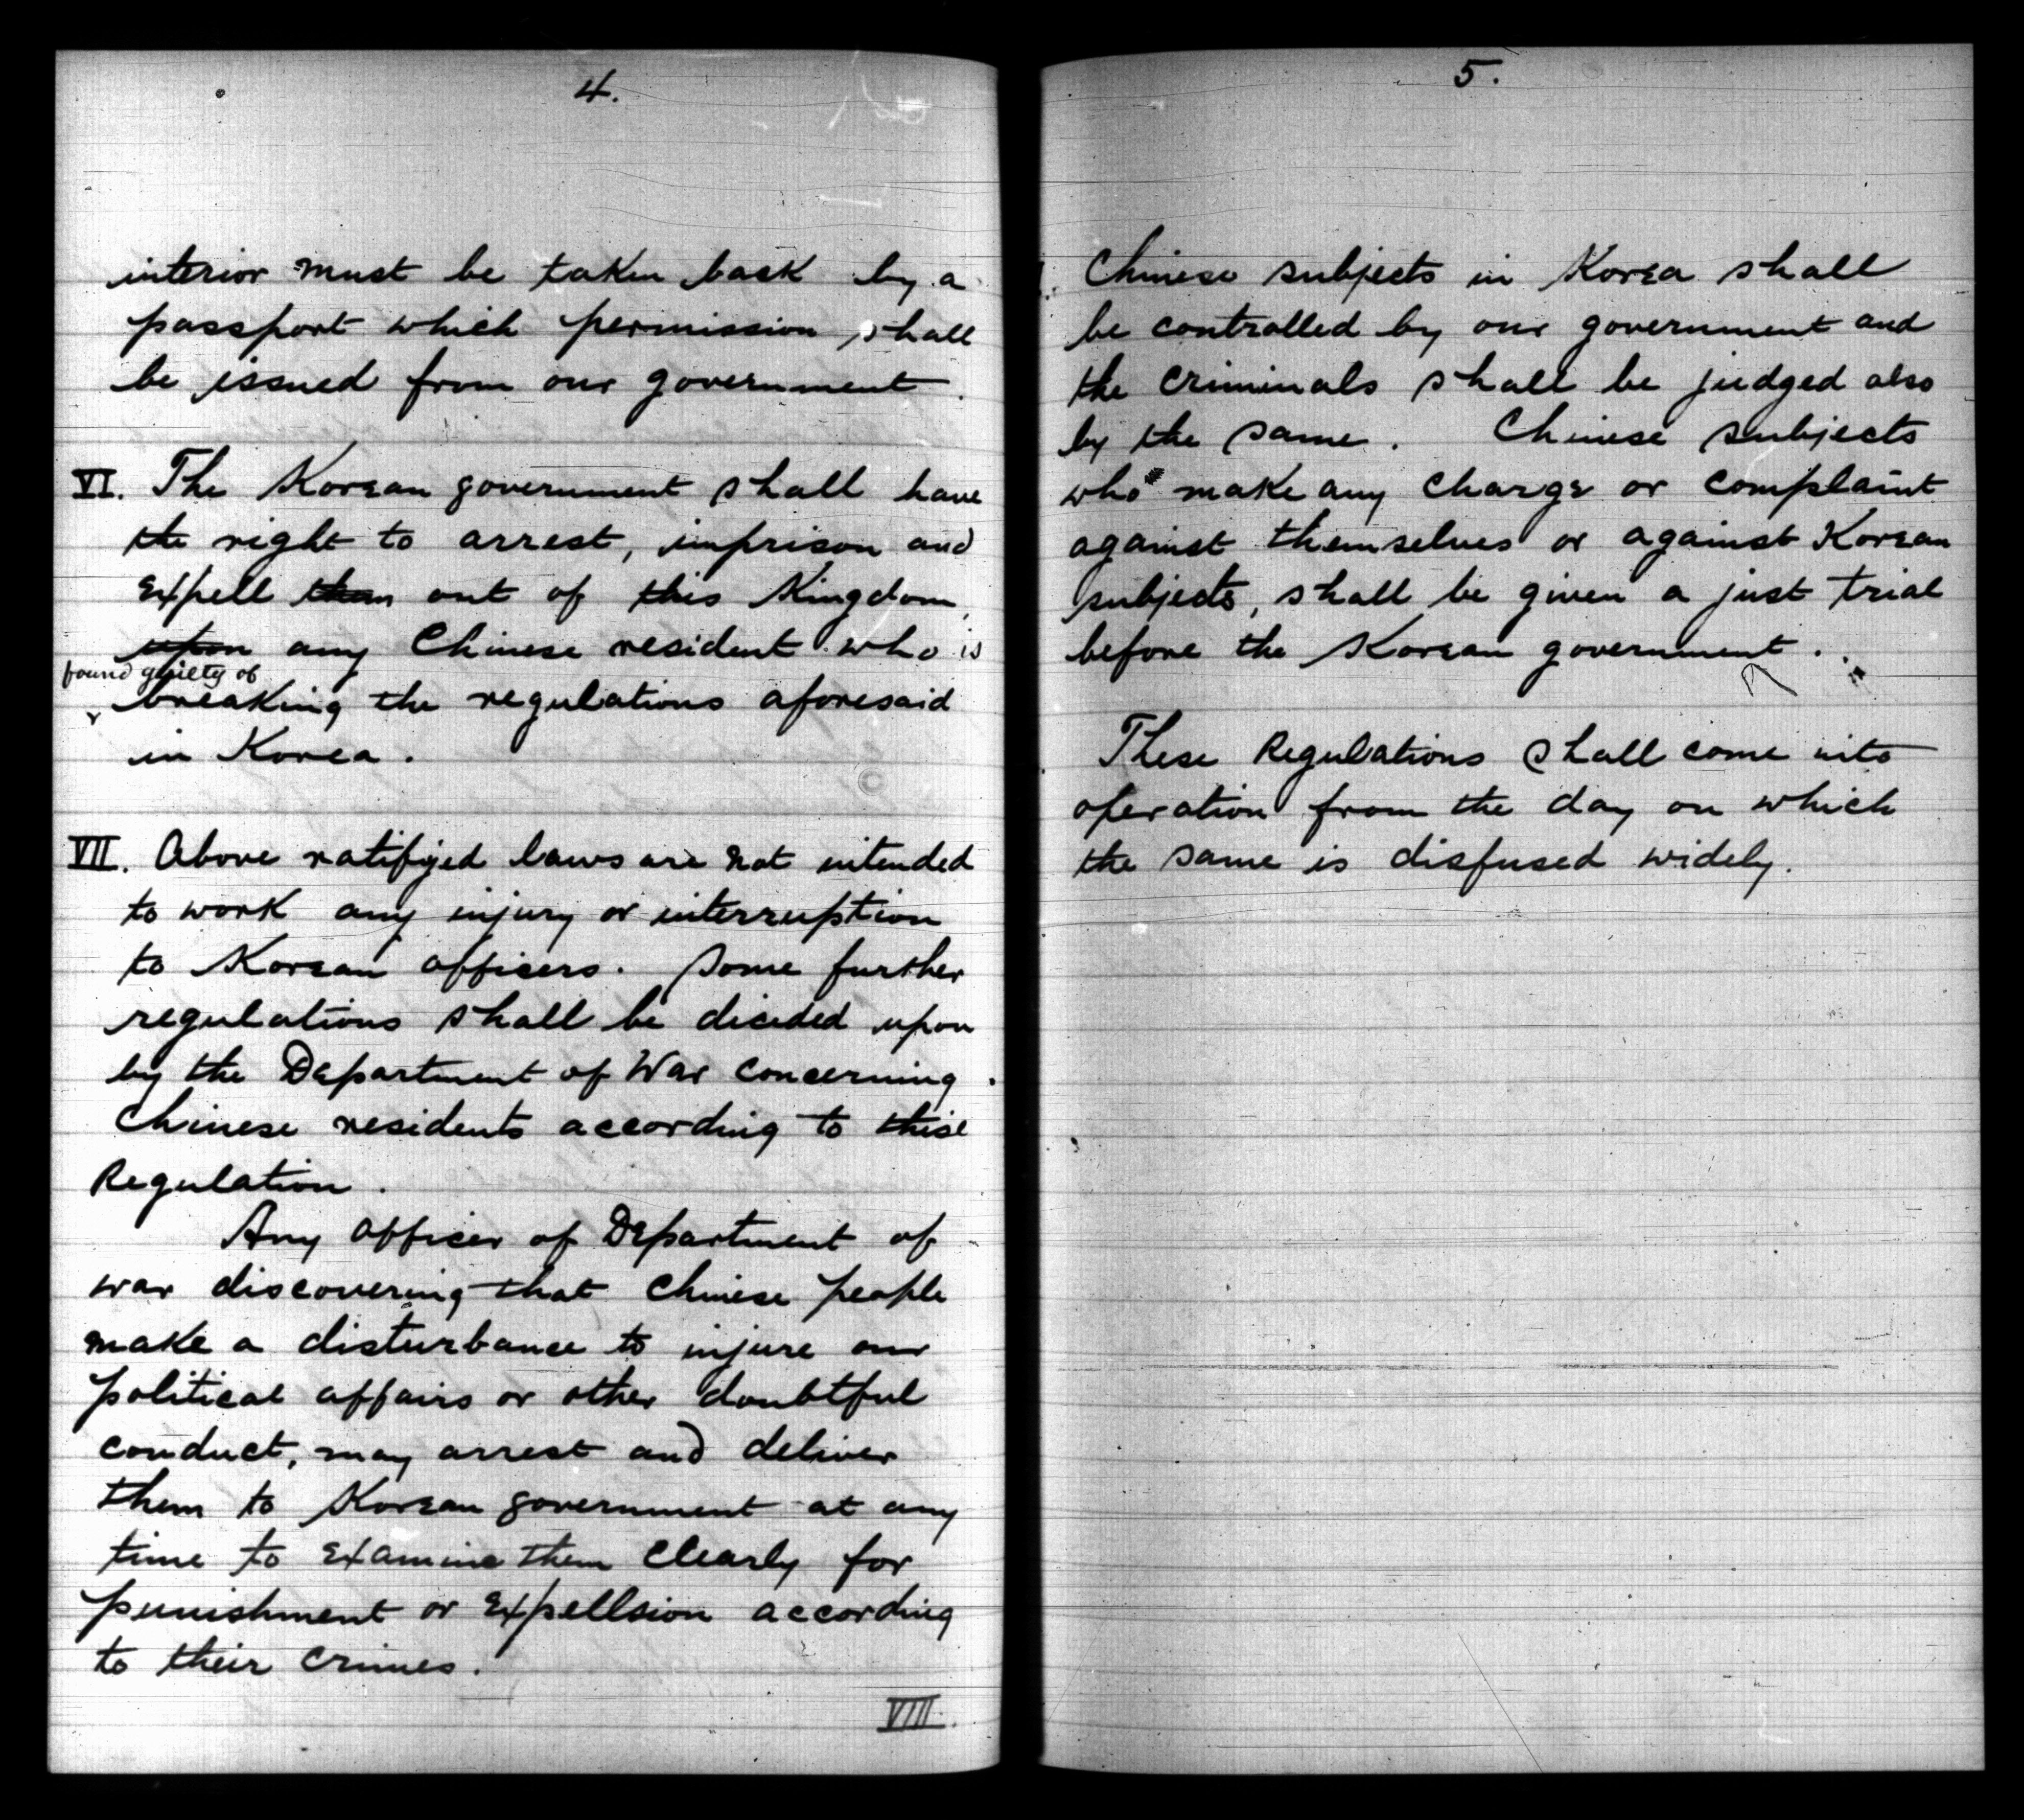 4.
interior must be taken back by a
passport which permission shall
be issued from our government.
VI. The Korean government shall have
the right to arrest, imprison and
expell than out of this Kingdom,
upon any Chinese resident who is
found guilty of
breaking the regulations aforesaid
in Korea.
VII. Above ratifyed laws are not intended
to work any injury or interruption
to Korean officers. Some further
regulations shall be dicided upon
by the Department of War concerning
Chinese residents according to thise
Regulation.
Any officer of Department of
war discovering that Chinese people
make a disturbance to injure our
political affairs or other doubtful
conduct, may arrest and deliver
them to Korean government at any
time to examine them clearly for
punishment or expellsion according
to their crimes.
VIII.
5.
Chinese subjects in Korea shall
be controlled by our government and
the criminals shall be judged also
by the same. Chinese subjects
who make any charge or complaint
against themselves or against Korean
subjects, shall be given a just trial
before the Korean government.
These Regulations shall come into
operation from the day on which
the same is disfused widely.